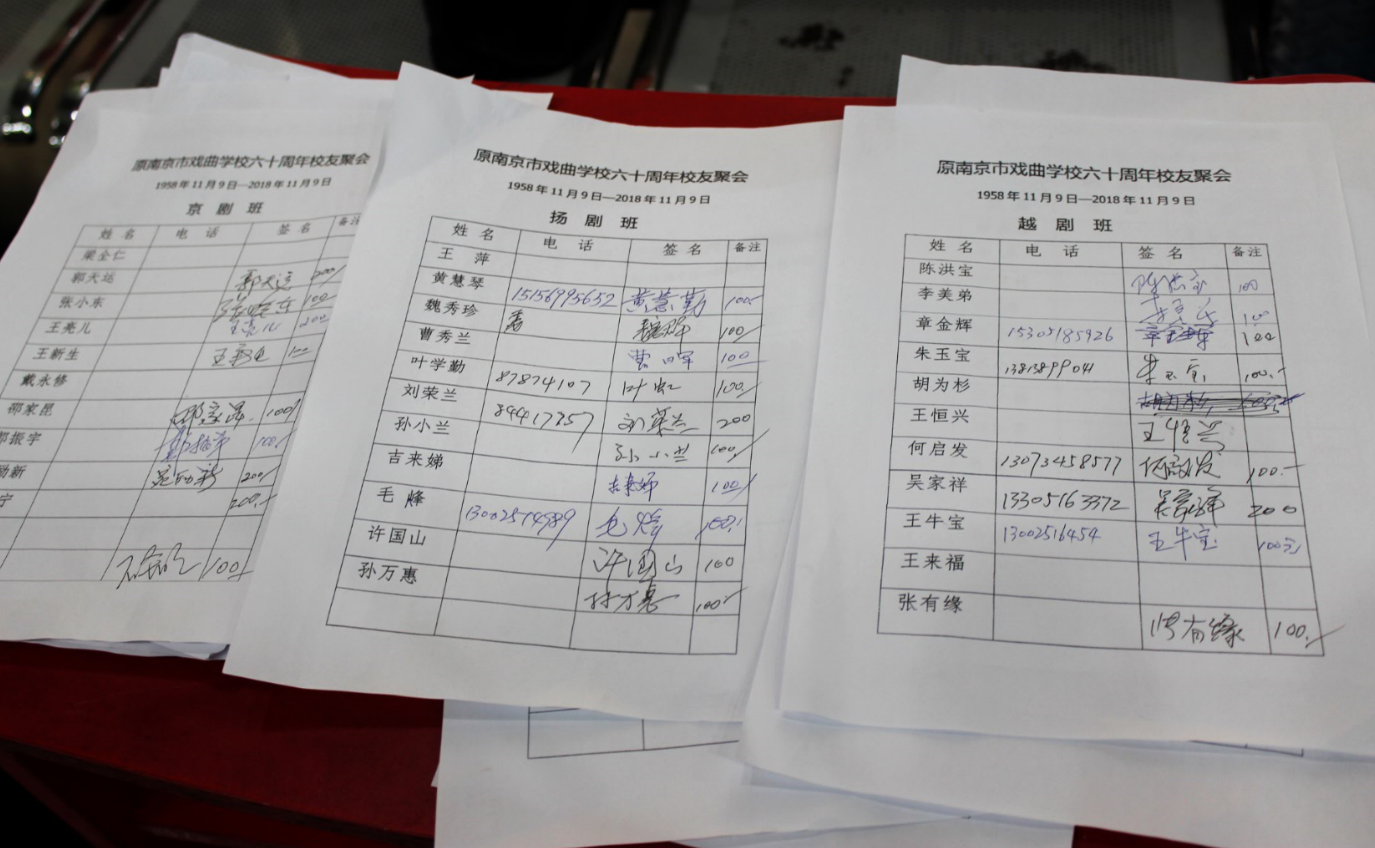 原南京市戏曲学校六十周年校友聚会
1958年11月9日—2018年11月9日
京 剧 班
姓 名 电 话 签 名 备注
梁全仁
郭天运 郭天运 200/
张小东 100/
王亮儿 王亮儿 200/
王新生 100
戴永修
邵家昆 100/
郎振宇 100/
勋新 200/
宁 200.-
100/
原南京市戏曲学校六十周年校友聚会
1958年11月9日—2018年11月9日
扬 剧 班
姓 名 电 话 签 名 备注
王 萍
黄慧琴 15156995652 黄慧勤 100
魏秀珍 100/
曹秀兰 100
叶学勤 87874107 叶虹 100/
刘荣兰 89417857 刘荣兰 200
孙小兰 孙小兰 100/
吉来娣 吉来娣 100/
毛 烽 13002514989 毛烽 100/
许国山 许国山 100
孙万惠 孙万惠 100/
原南京市戏曲学校六十周年校友聚会
1958年11月9日—2018年11月9日
越 剧 班
姓 名 电 话 签 名 备注
陈洪宝 陈洪宝 100
李美弟 100
章金辉 15305185926 章金辉 100
朱玉宝 朱玉宝 100.-
胡为杉
王恒兴 王恒兴
何启发 13073458577 何启发 100.-
吴家祥 13305163372 吴家祥 200
王牛宝 13002516454 王牛宝 100元
王来福
张有缘 张有缘 100./